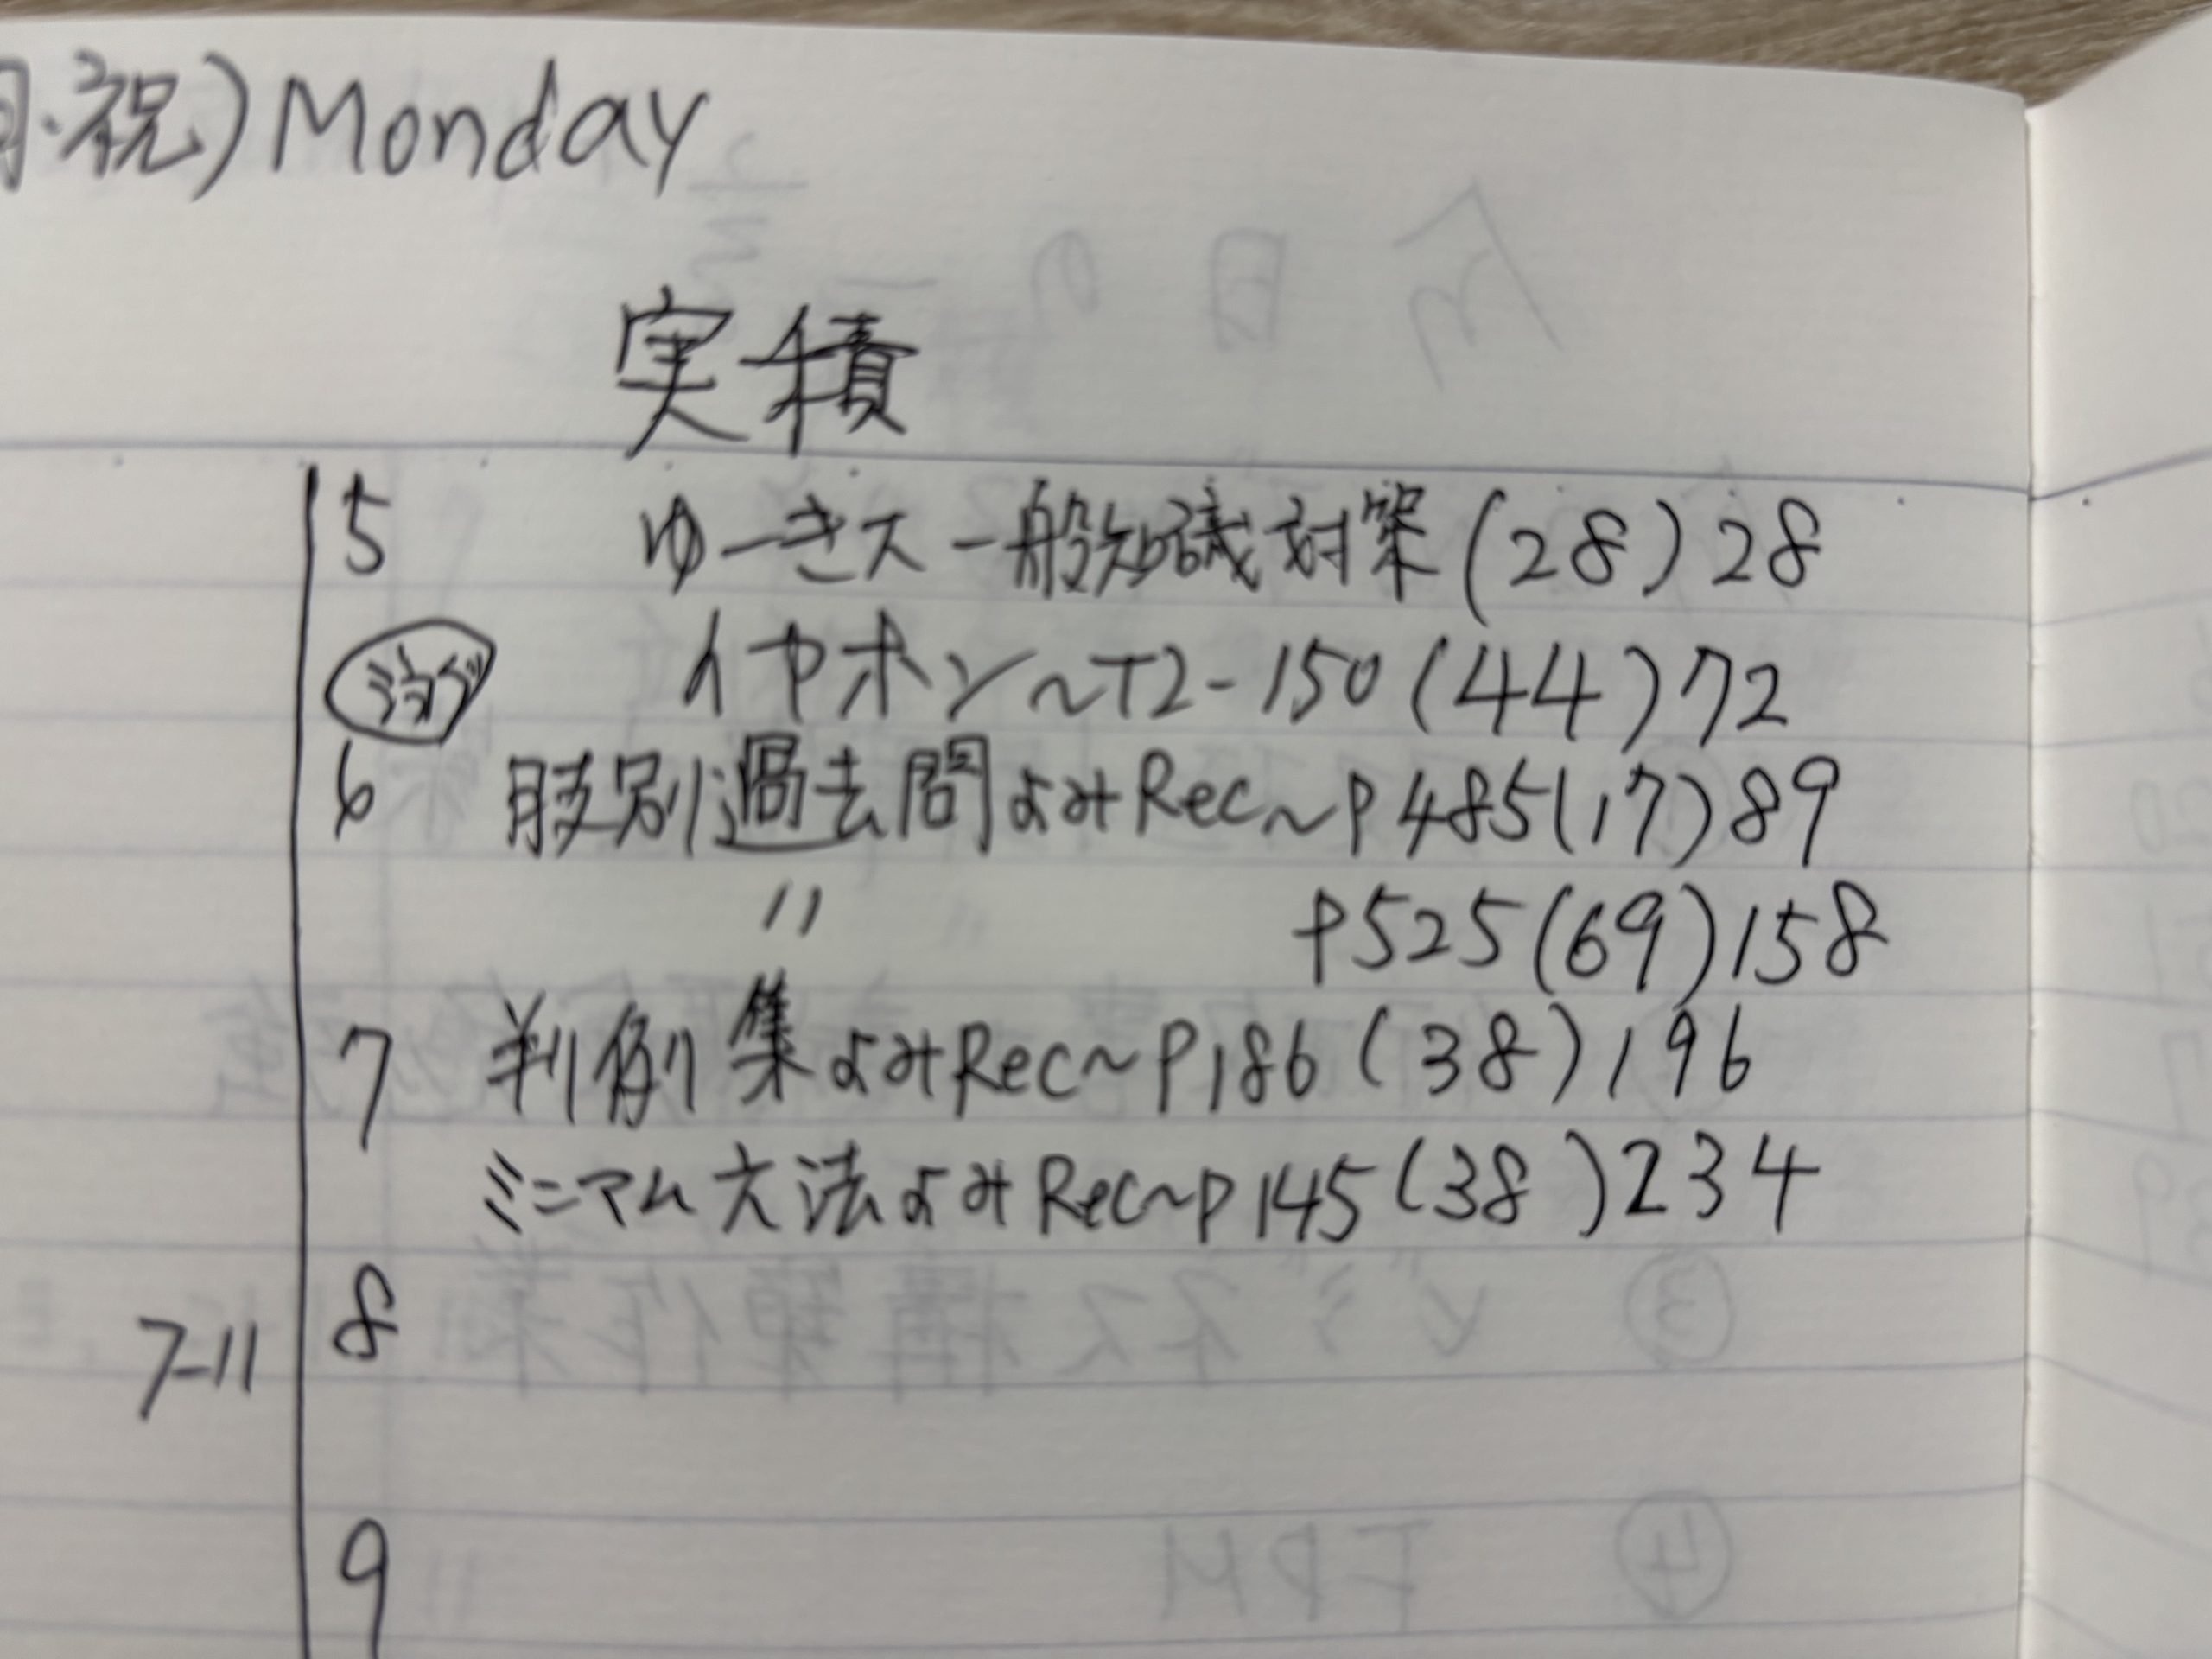 月・祝) Monday
実積
5 ゆーきス一般知識対策 (28) 28
イヤホン～T2-150 (44) 72
6 肢別過去問よみRec～P485 (17) 89
〃 P525 (69) 158
7 判例集よみRec～P186 (38) 196
ミニマム六法よみRec～P145 (38) 234
7-11 8
9